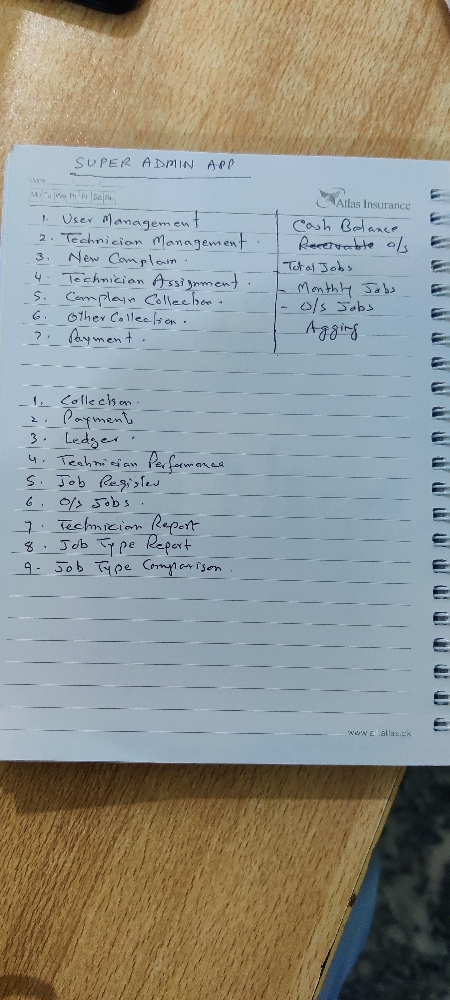 SUPER ADMIN APP
Date
Mo Tu We Th Fr Sa Su
Atlas Insurance
1. User Management
2. Technician Management.
3. New Complain.
4. Technician Assignment.
5. Complain Collection.
6. Other Collection.
7. Payment.
Cash Balance
Receivable O/s
Total Jobs
- Monthly Jobs
- O/s Jobs
Agging
1. Collection.
2. Payment
3. Ledger.
4. Technician Perfomance
5. Job Register
6. O/s Jobs.
7. Technician Report
8. Job Type Report
9. Job Type Comparison.